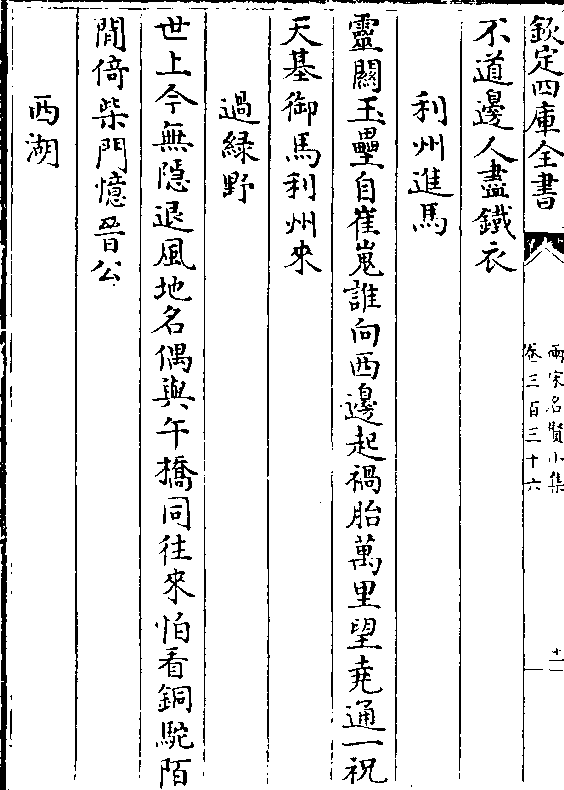 欽定四庫全書
兩宋名賢小集
卷三百三十六
十一
不道邊人盡鐵衣
利州進馬
靈關玉壘自崔嵬誰向西邊起禍胎萬里望堯通一祝
天基御馬利州來
過緑野
世上今無隱退風地名偶與午橋同往來怕看銅駝陌
閒倚柴門憶晉公
西湖